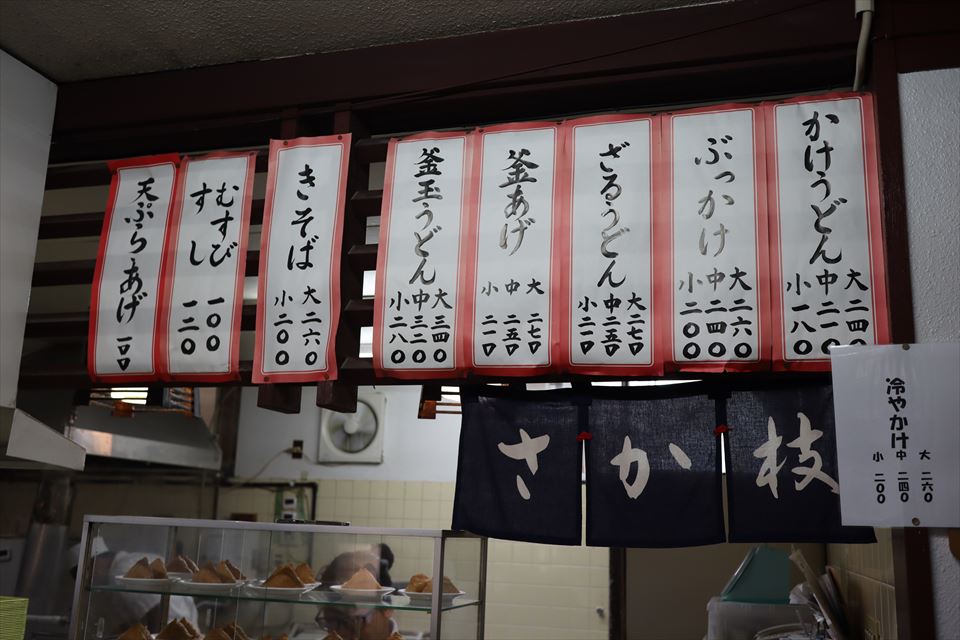 かけうどん
大二四〇
中二一〇
小一八〇
ぶっかけ
大二六〇
中二四〇
小二〇〇
ざるうどん
大二七〇
中二五〇
小二一〇
釜あげ
大二七〇
中二五〇
小二一〇
釜玉うどん
大三四〇
中三二〇
小二八〇
きそば
大二六〇
小二〇〇
むすび 一〇〇
すし 一三〇
天ぷらあげ 一〇〇
さか枝
冷やかけ
大 二六〇
中 二四〇
小 二〇〇